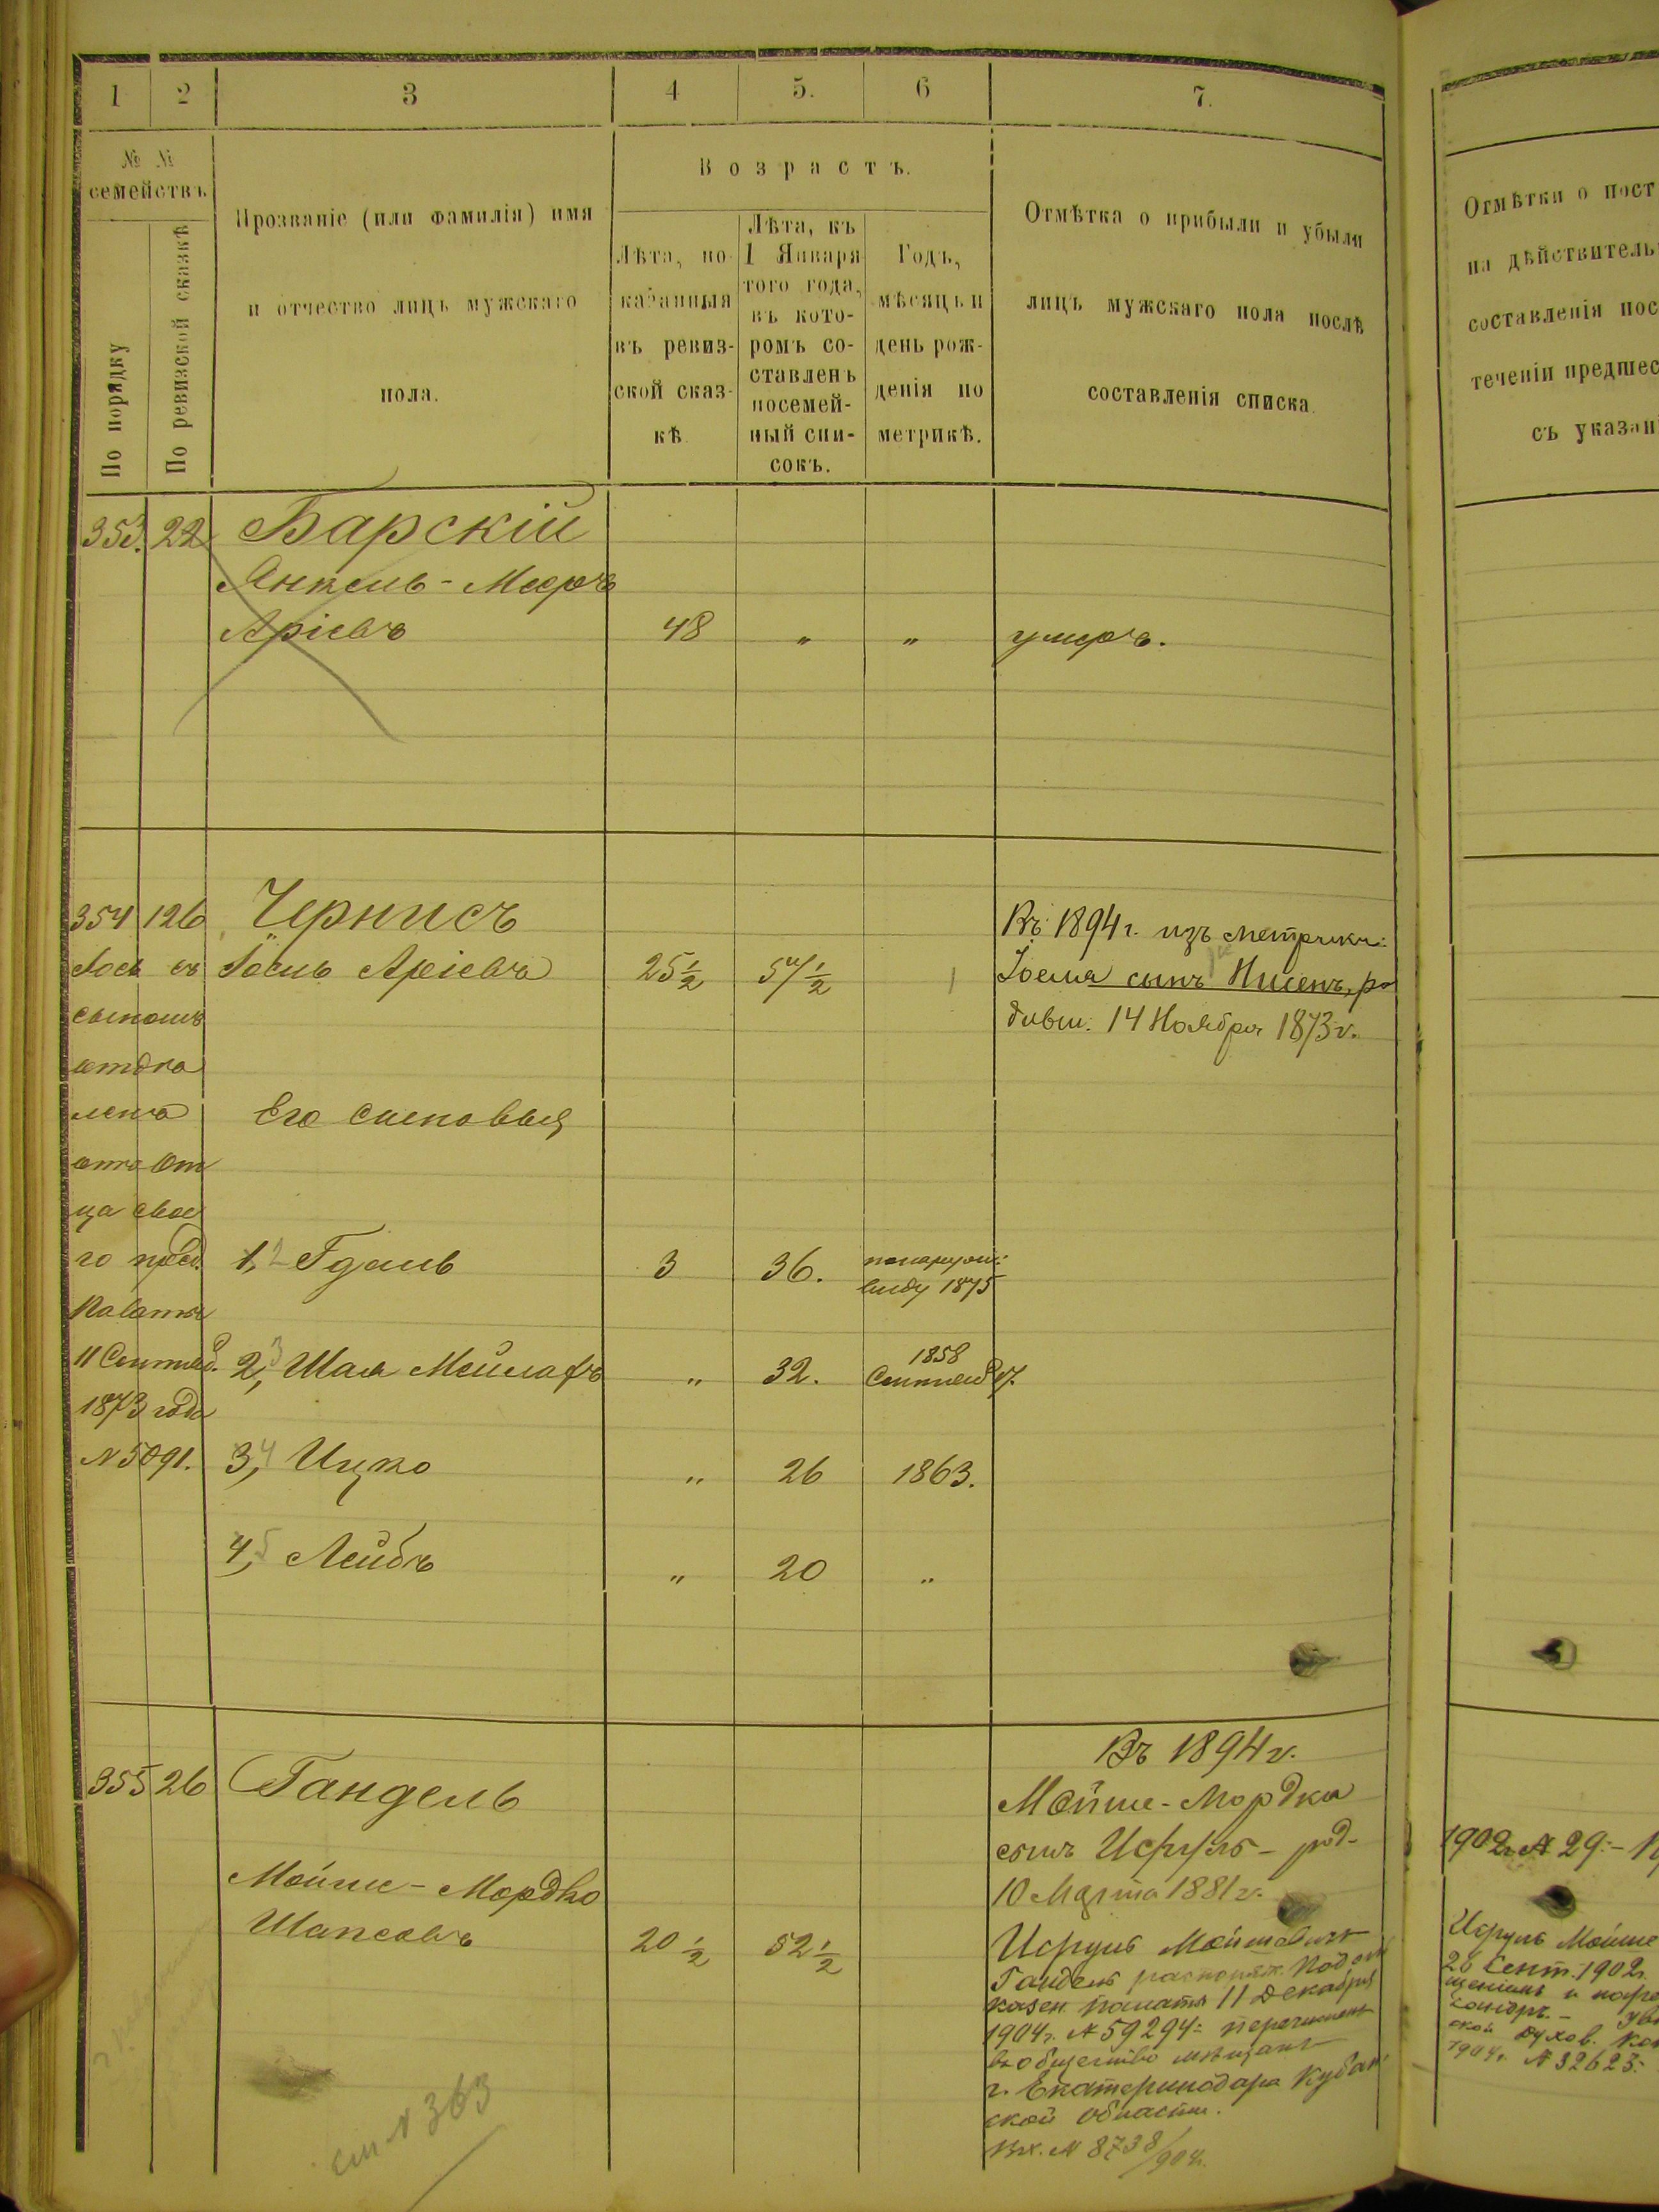 1 2 3 4 5. 6 7.
№ №
семействъ
По порядку
По ревизской сказкѣ
Прозваніе (или фамилія) имя
и отчество лицъ мужскаго
пола.
Возрастъ.
Лѣта, по-
казанныя
въ ревиз-
ской сказ-
кѣ.
Лѣта, къ
1 Января
того года,
въ кото-
ромъ со-
ставленъ
посемей-
ный спи-
сокъ.
Годъ,
мѣсяцъ и
день рож-
денія по
метрикѣ.
Отмѣтка о прибыли и убыли
лицъ мужскаго пола послѣ
составленія списка.
353. 22 Барскій
Янкель-Меєръ
Аріевъ 48 „ „ умеръ.
354 126 Чернисъ
Іосель Аріевъ 25½ 57½
Іось съ
сыномъ
отдѣ
ленъ
отъ От
ца свое
го пред.
Палаты
11 Сентяб.
1873 года
№ 5091.
Въ 1894 г. изъ метрики:
Іоселя сынъ Нисенъ, ро
дивш. 14 Ноября 1873 г.
Его сыновья
1, 2 Гдаль 3 36. по наружн:
виду 1875
2, 3 Шая Мейлахъ „ 32. 1858
Сентяб 7.
3, 4 Ицко „ 26 1863.
4, 5 Лейбъ „ 20 „
355 26 Гандель
Мойше-Мордко
Шапсовъ 20½ 52½
Въ 1894 г.
Мойше-Мордка
сынъ Исруль - род-
10 Марта 1881 г.
Исруль Мойшевичъ
Гандель распоряж. Подол
казен. палаты 11 Декабря
1904 г. № 59294: перечисленъ
въ общество мѣщанъ
г. Екатеринодара Кубан
ской области.
Вх. № 8738/904.
см № 363
Отмѣтки о пост
на дѣйствитель
составленія пос
теченіи предшес
съ указан
1902 г. № 29:-
Исруль Мойше
26 Сент. 1902 г.
щеніемъ и
ской духов.
1904 г. № 32623: